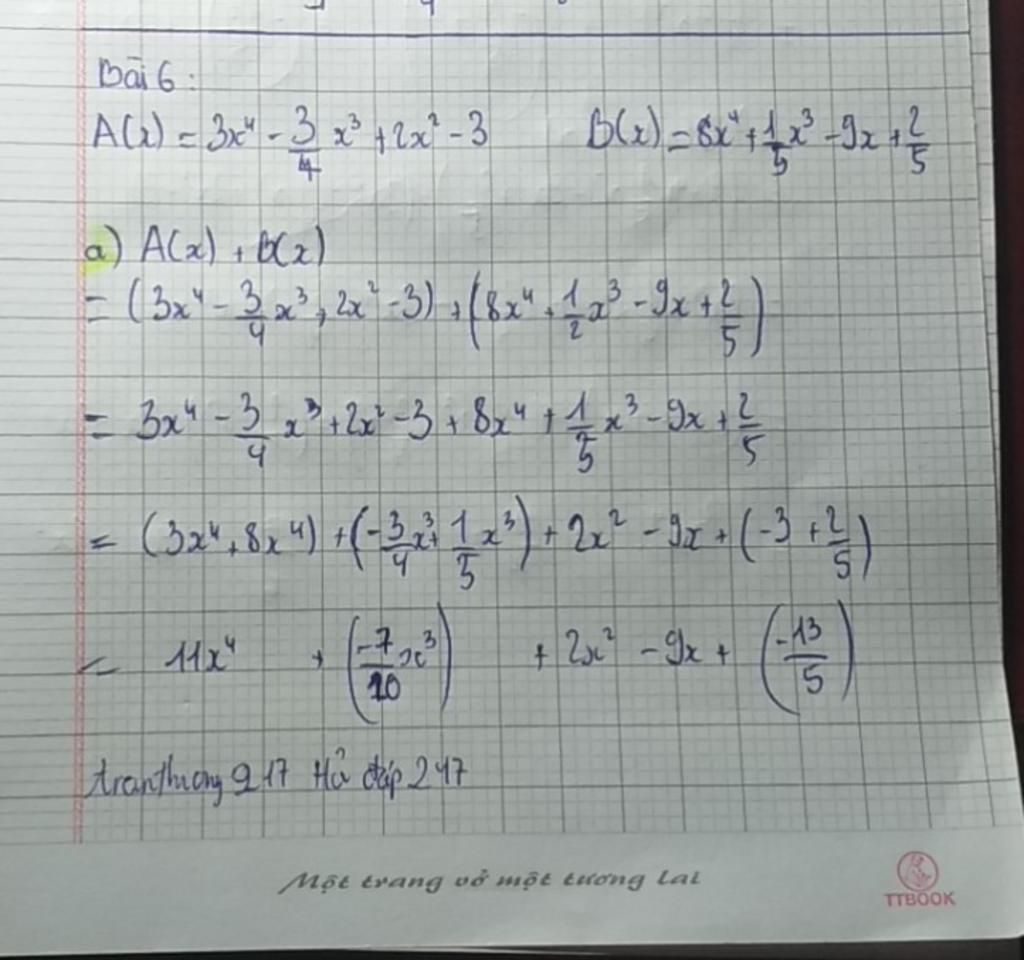 Bài 6:
A(x) = 3x⁴ - 3/4 x³ + 2x² - 3 B(x) = 8x⁴ + 1/5 x³ - 9x + 2/5
a) A(x) + B(x)
= (3x⁴ - 3/4 x³ + 2x² - 3) + (8x⁴ + 1/2 x³ - 9x + 2/5)
= 3x⁴ - 3/4 x³ + 2x² - 3 + 8x⁴ + 1/5 x³ - 9x + 2/5
= (3x⁴ + 8x⁴) + (-3/4 x³ + 1/5 x³) + 2x² - 9x + (-3 + 2/5)
= 11x⁴ + (-7/20 x³) + 2x² - 9x + (-13/5)
tranthuong 917 Hỏi đáp 247
Một trang vở một tương lai
TTBOOK